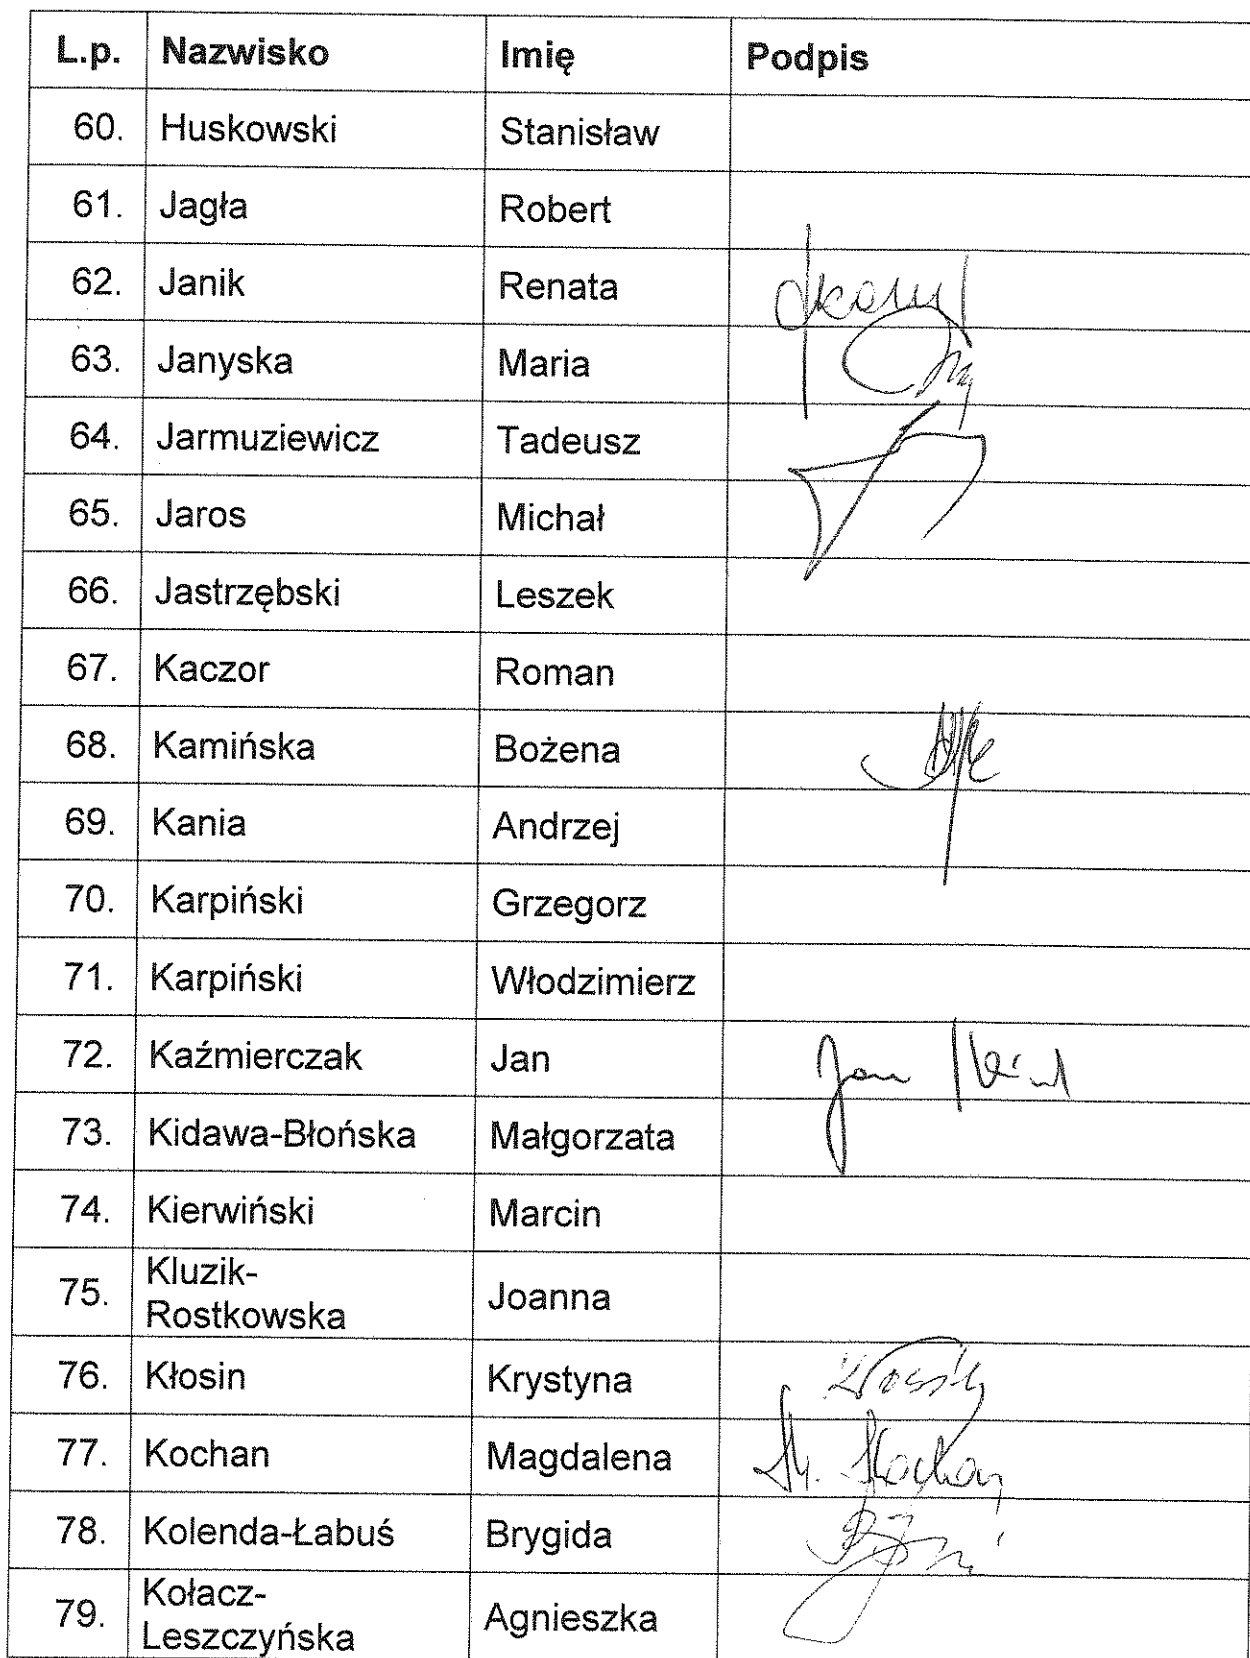 L.p. Nazwisko Imię Podpis
60. Huskowski Stanisław
61. Jagła Robert
62. Janik Renata
63. Janyska Maria
64. Jarmuziewicz Tadeusz
65. Jaros Michał
66. Jastrzębski Leszek
67. Kaczor Roman
68. Kamińska Bożena
69. Kania Andrzej
70. Karpiński Grzegorz
71. Karpiński Włodzimierz
72. Kaźmierczak Jan Jan
73. Kidawa-Błońska Małgorzata
74. Kierwiński Marcin
75. Kluzik-
Rostkowska Joanna
76. Kłosin Krystyna
77. Kochan Magdalena M. Kochan
78. Kolenda-Łabuś Brygida
79. Kołacz-
Leszczyńska Agnieszka